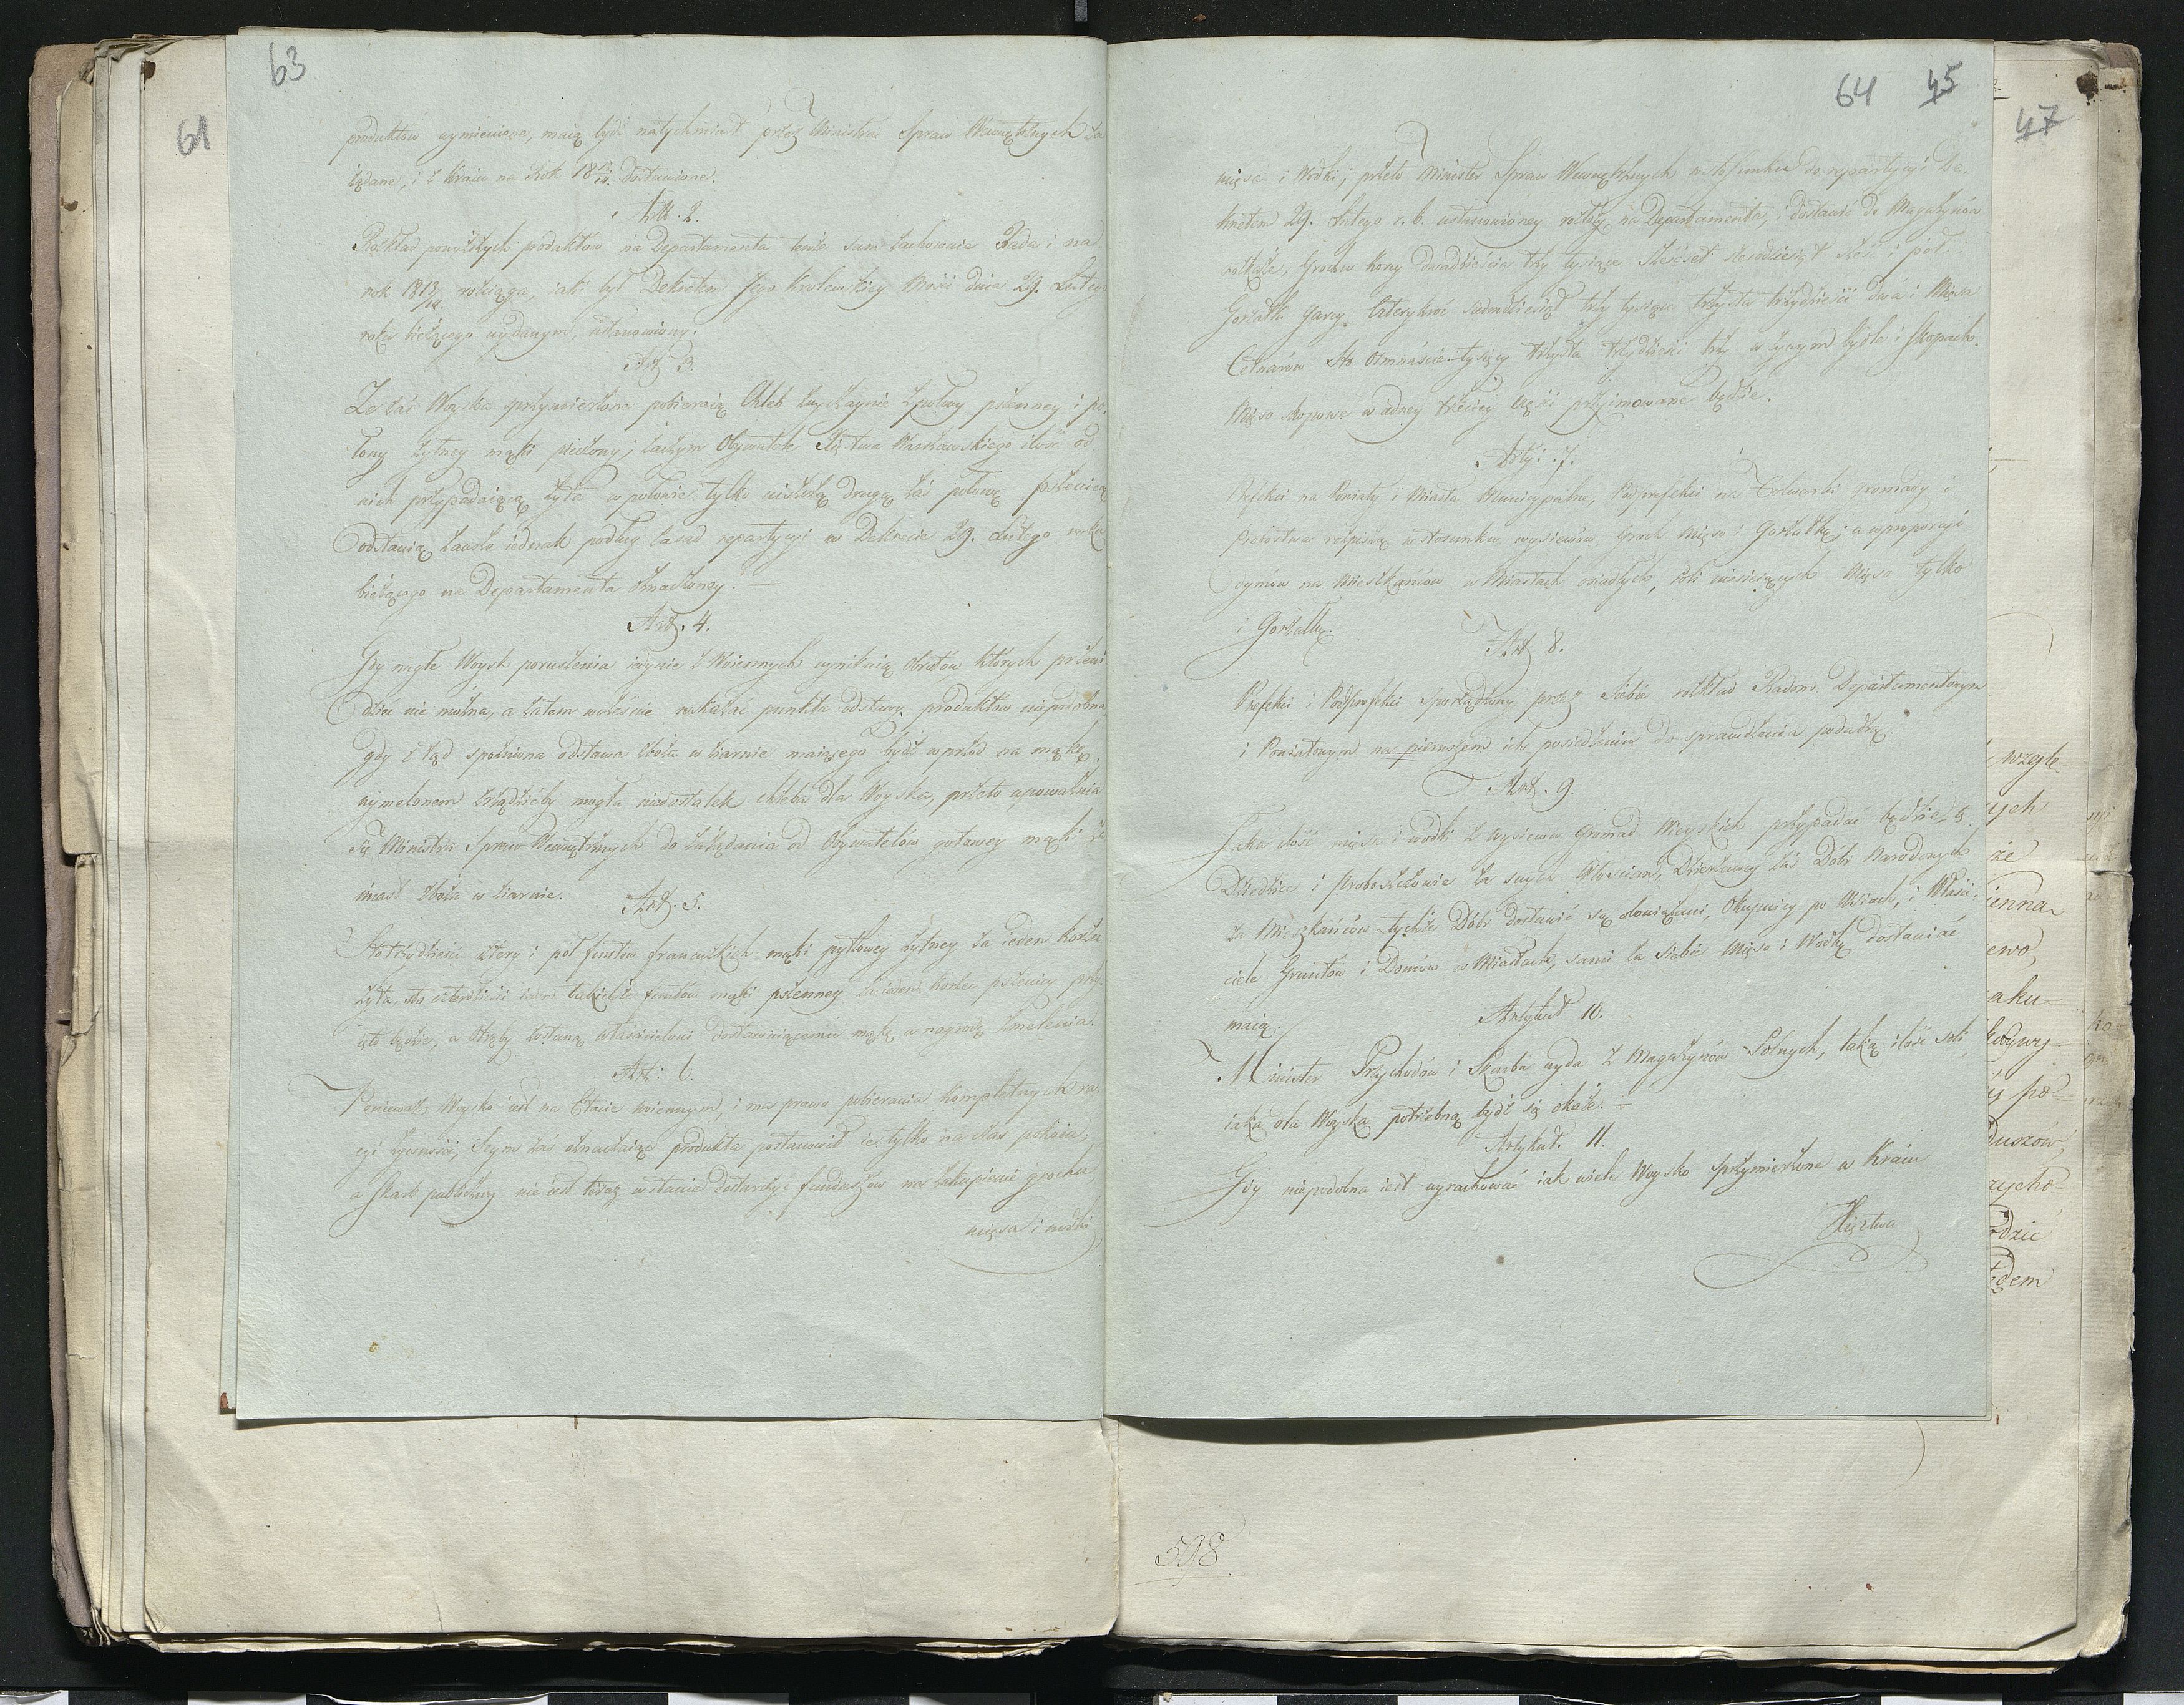 63
61
produktów wymienione, maią bydź natychmiast przez Ministra Spraw Wewnętrznych za
żądane, i z Kraiu na Rok 18 13/14. dostawione.
Art. 2.
Rozkład powyższych produktów na Departamenta tenże sam zachowuie Rada i na
rok 18 13/14 rościąga, iaki był Dekretem Jego Krolewskiey Mości dnia 29. Lutego
roku bieżącego wydanym, ustanowiony.
Art. 3.
Że zaś Woyska sprzymierzone pobieraią Chleb zwyczaynie z połowy pszenney i po-
łowy żytney mąki pieczony; zaczym Obywatele Xięztwa Warszawskiego ilość od
nich przypadaiącą żyta w połowie tylko uiszczą drugą zaś połowę pszenicą
odstawią zawsze iednak podług zasad repartycyi w Dekrecie 29. Lutego roku
bieżącego na Departamenta oznaczoney. —
Art. 4.
Gdy nagłe Woysk poruszenia iedynie z Woiennych wynikaią obrotów, których przewi-
dzieć nie można, a zatem wcześnie wskazać punkta odstawy produktów niepodobna,
gdy z tąd spóźniona odstawa zboża w ziarnie maiącego bydź wprzód na mąkę
wymelonem zrządzićby mogła niedostatek chleba dla Woyska, przeto upoważnia
się Ministra Spraw Wewnętrznych do zażądania od Obywatelów gotowey mąki za
miast zboża w ziarnie.
Art. 5.
Sto trzydzieści cztery i pół funtów francuzkich mąki pytlowey żytney za ieden korzec
żyta, sto czterdzieści ieden takichże funtów mąki pszenney za ieden korzec pszenicy przy-
ięto będzie, a otręby zostaną właścicielowi dostawuiącemu mąkę w nagrodę zmelenia.
Art: 6.
Ponieważ Woysko iest na Etacie woiennym, i ma prawo pobierania kompletnych ra-
cyi żywności, Seym zaś oznaczaiąc produkta postanowił ie tylko na czas pokoiu;
a Skarb publiczny nie iest teraz w stanie dostarczyć funduszów na zakupienie grochu,
mięsa i wodki
64 45
47
mięsa i Wodki; przeto Minister Spraw Wewnętrznych w stosunku do repartycyi De-
kretem 29. Lutego r. b. ustanowioney rozłoży na Departamenta, i dostawić do Magazynów
rozkaże, Grochu Korcy dwadzieścia trzy tysiące sześćset sześćdziesiąt sześć i poł
Gorzałki Garcy czterykroć siedmdziesiąt trzy tysiące trzysta trzydzieści dwa i Mięsa
Cetnarów Sto Osmnaście tysięcy trzysta trzydzieści trzy w żywym bydle i Skopach.
Mięso skopowe w iedney trzeciey części przyimowane będzie.
Arty: 7.
Prefekci na Powiaty i Miasta Municypalne, Podprefekci na Folwarki gromady i
Probostwa rozpiszą w stosunku wysiewów Groch Mięso i Gorzałkę; a w proporcyi
dymów na Mieszkańców w Miastach osiadłych, roli niesieiących Mięso tylko
i Gorzałkę.
Art 8.
Prefekci i Podprefekci sporządzony przez siebie rozkład Radom Departamentowym
i Powiatowym na pierwszem ich posiedzeniu do sprawdzenia podadzą.
Art. 9.
Jaka ilość mięsa i wodki z wysiewu Gromad Wieyskich przypadać będzie,
Dziedzice i Proboszczowie za swych Włościan, Dzierżawcy zaś Dóbr Narodowych
za Mieszkańców tychże Dóbr dostawić są obowiązani, Okupnicy po Wsiach, i Właści-
ciele Gruntów i Domów w Miastach, sami za siebie Mięso i Wodkę dostawiać
maią.
Artykuł 10.
Minister Przychodów i Skarbu wyda z Magazynów Solnych, taką ilość soli
iaka dla Woyska potrzebną bydź się okaże. —
Artykuł. 11.
Gdy niepodobna iest wyrachować iak wiele Woysko Sprzymierzone w Kraiu
Xięztwa
wzglę-
ych
że
ienna
ewo,
aku-
po-
Duszów,
rycho-
odzie
dem
598